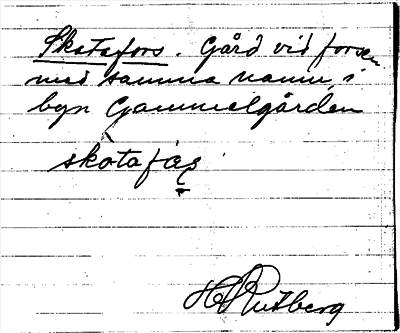 Skotafors. Gård vid forsen
med samma namn, i
byn Gammelgården
skòtafa̧s
H Rutberg